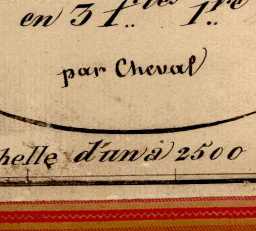 en 3 f.lles 1.re
par Cheval
helle d'un à 2500